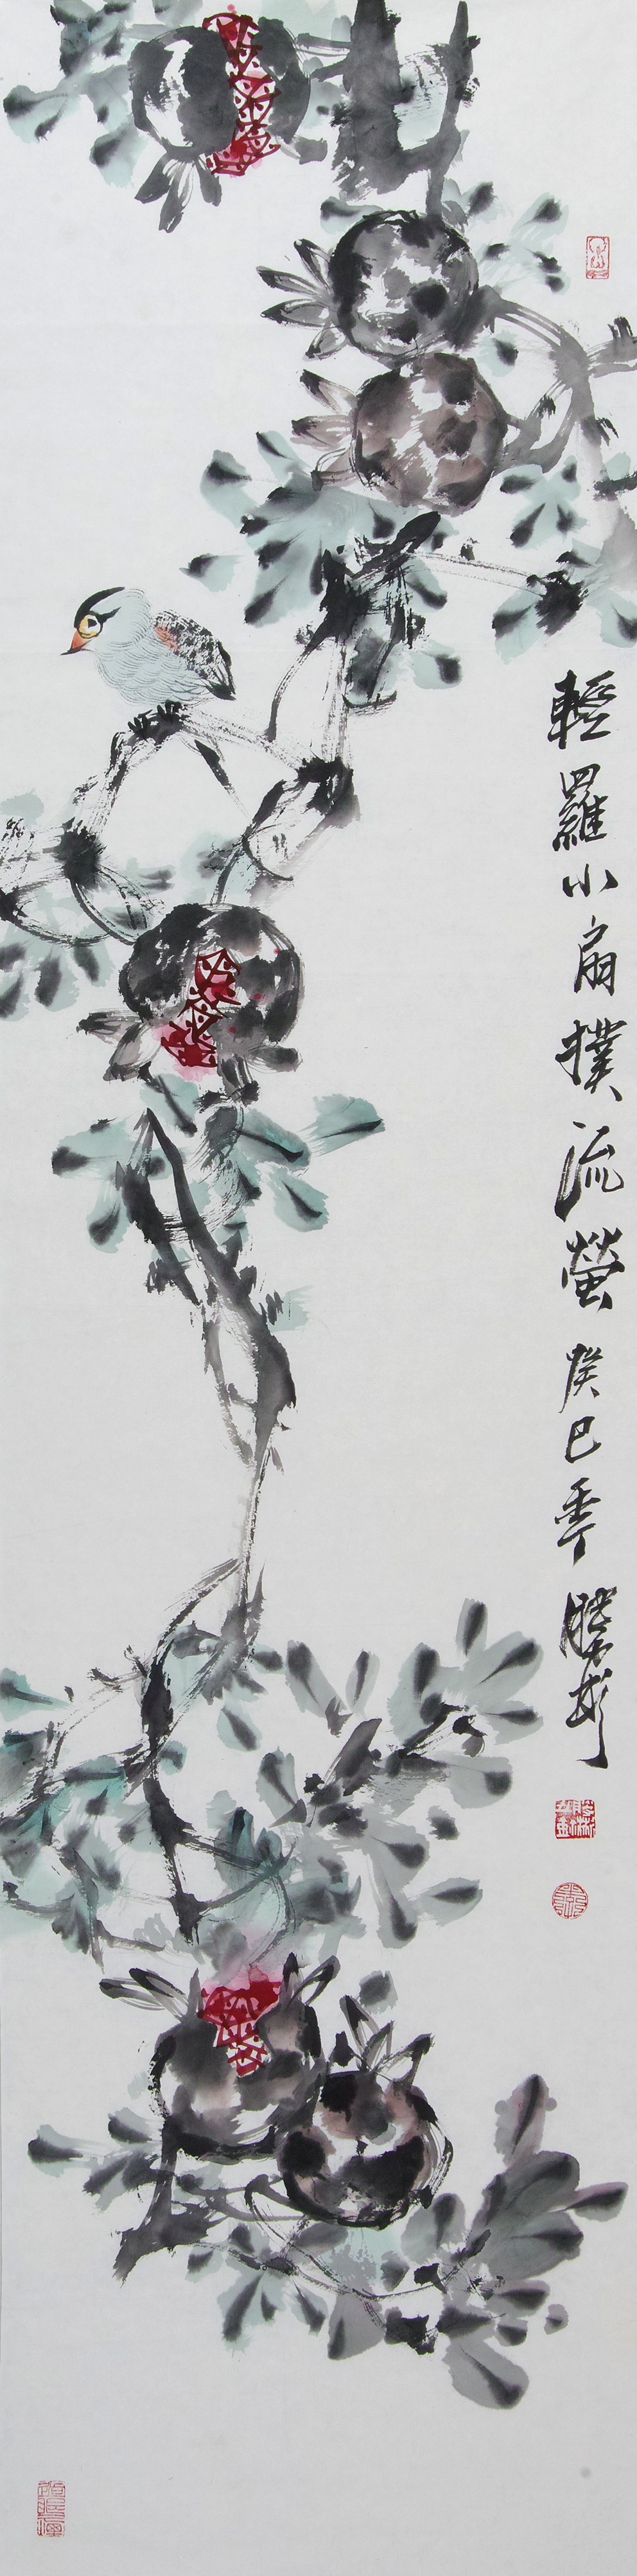 輕羅小扇撲流螢 癸巳季 勝彬